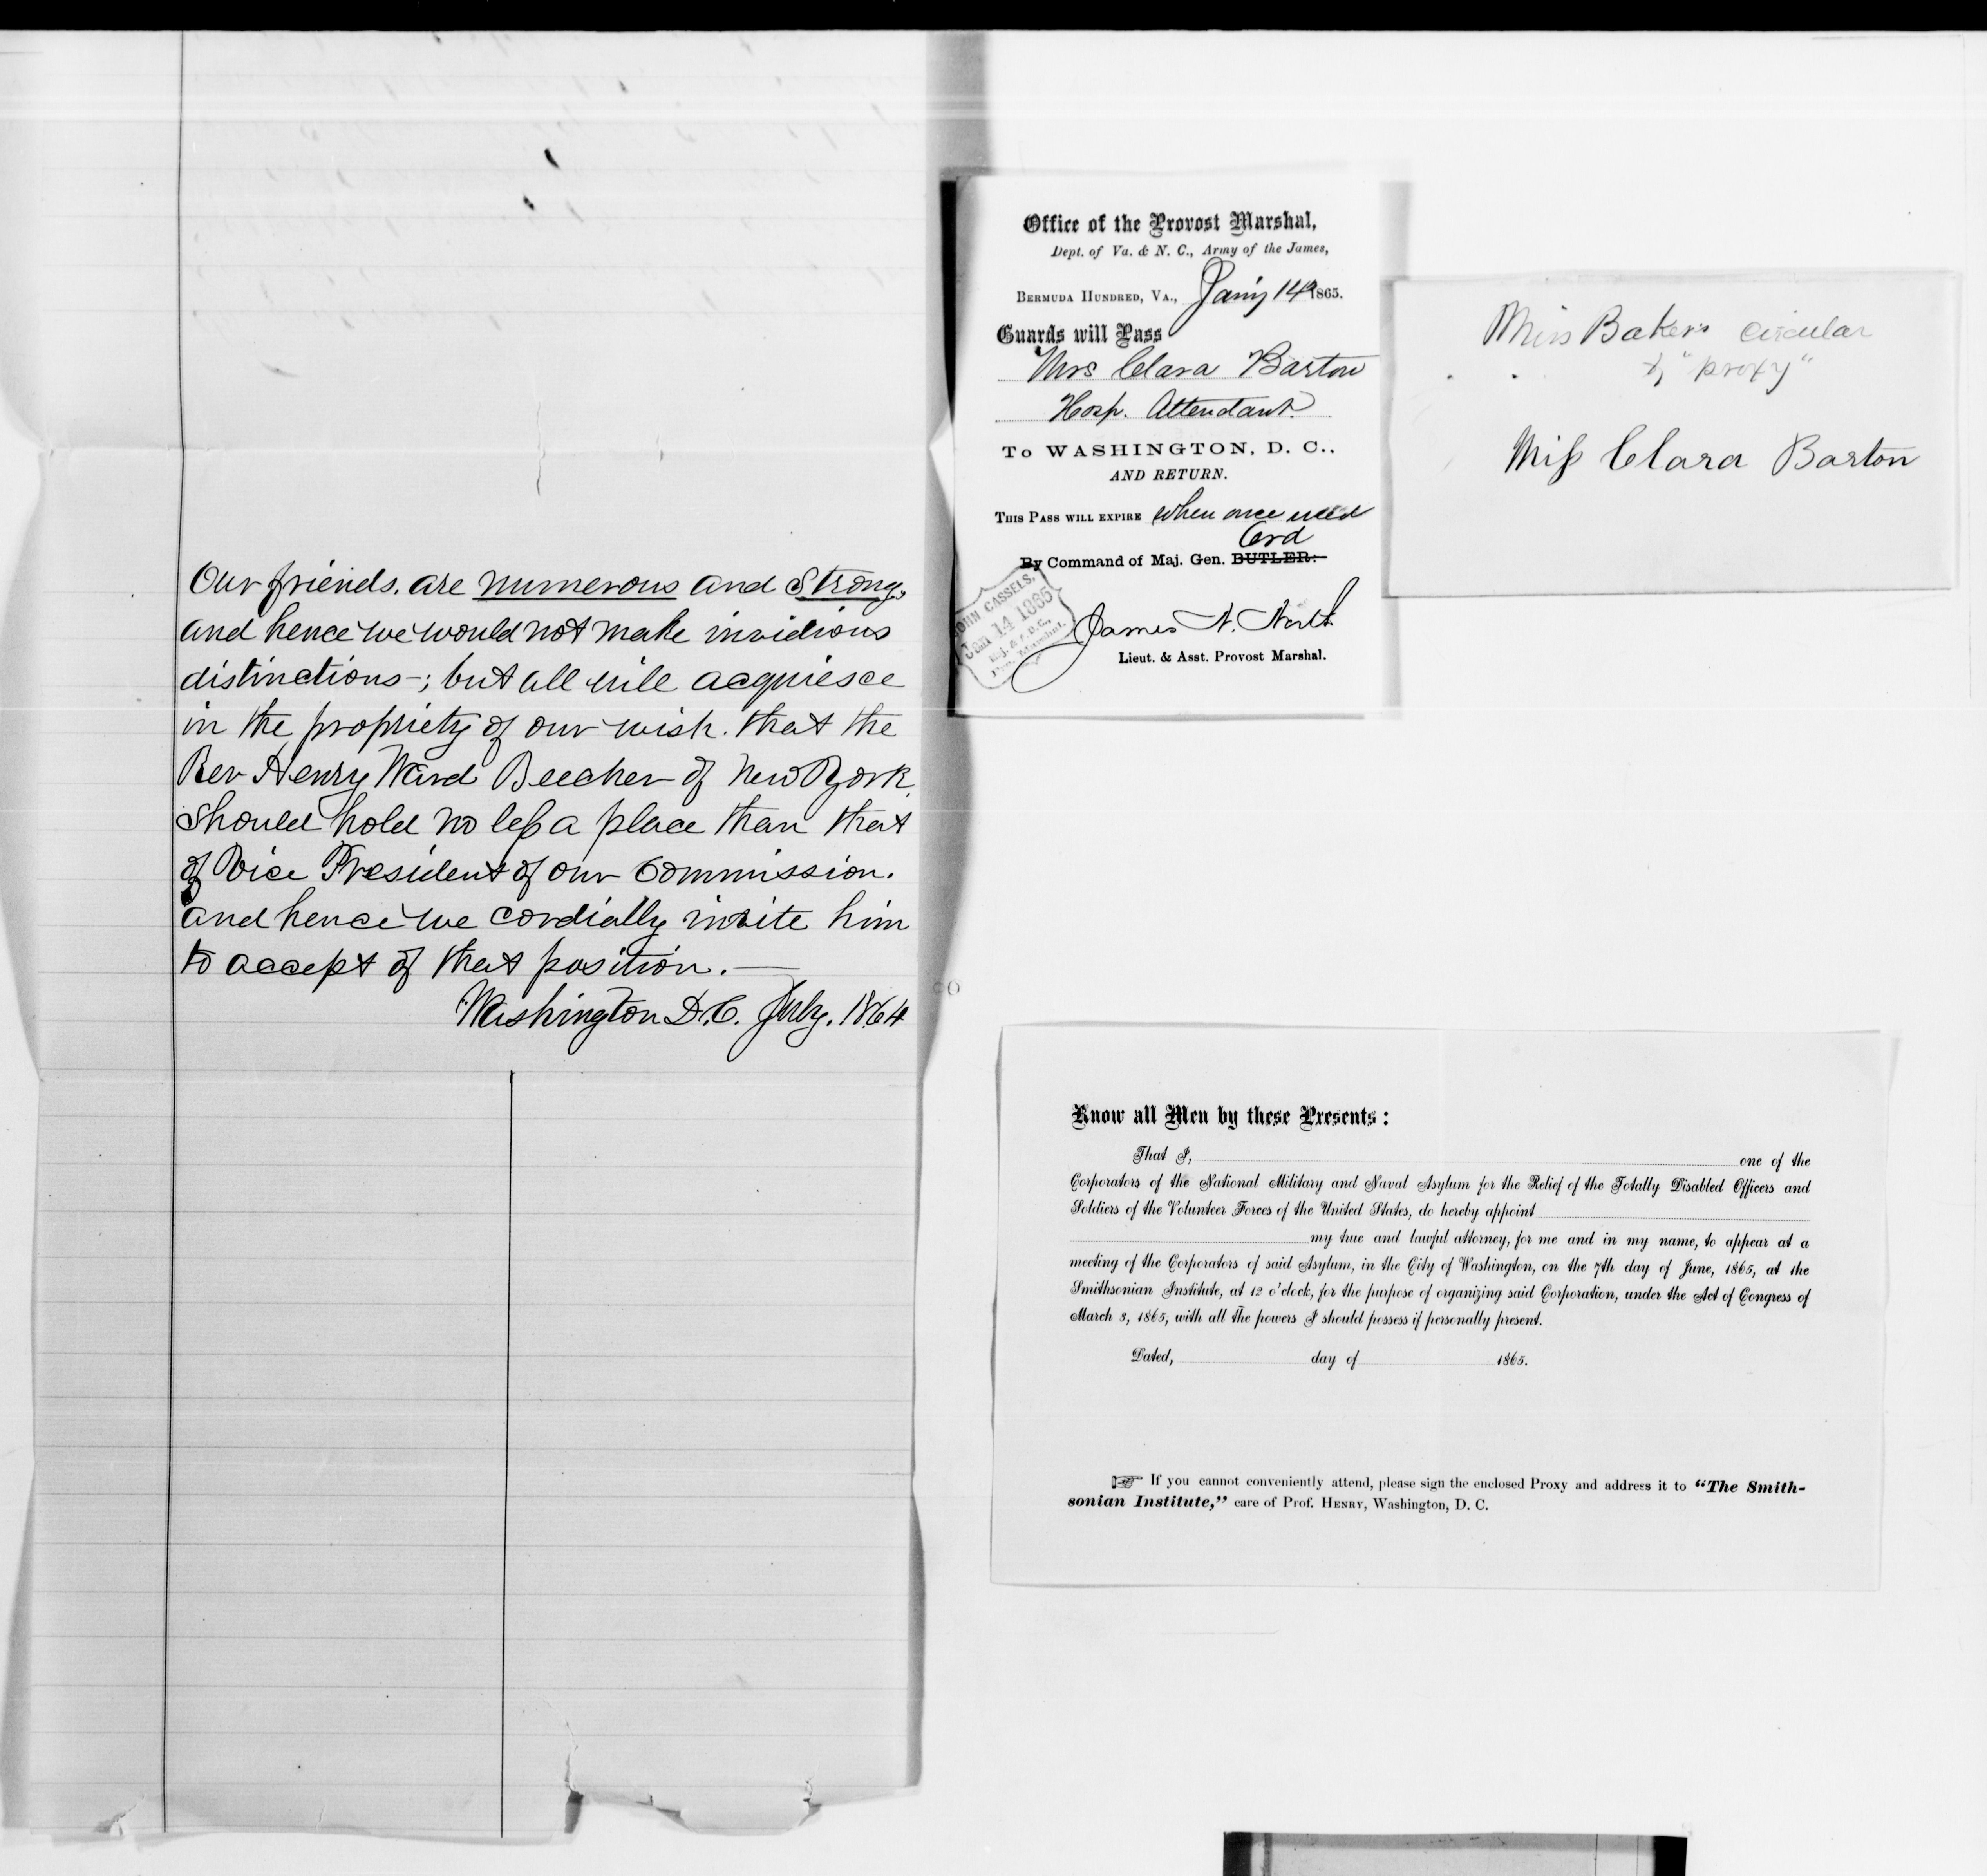 Our friends. are numerous and strong,
and hence we would not make invidious
distinctions -; but all will acquiesce
in the propriety of our wish. that the
Rev Henry Ward Beecher of New York.
should hold no less a place than that
of Vice President of our Commission.
and hence we cordially invite him
to accept of that position. —
Washington D.C. July. 1864
Office of the Provost Marshal,
Dept. of Va. & N. C., Army of the James,
BERMUDA HUNDRED, VA., Jany 14 1865.
Guards will Pass
Mrs Clara Barton
Hosp. Attendant
To WASHINGTON, D. C.,
AND RETURN.
THIS PASS WILL EXPIRE when once used
Ord
By Command of Maj. Gen. BUTLER:
JOHN CASSELS,
Jan 14 1865
Maj. & A.D.C.,
Pro. Marshal.
James N. North
Lieut. & Asst. Provost Marshal.
Miss Bakers circular
& "proxy"
Miss Clara Barton
Know all Men by these Presents:
That I, one of the
Corporators of the National Military and Naval Asylum for the Relief of the Totally Disabled Officers and
Soldiers of the Volunteer Forces of the United States, do hereby appoint
my true and lawful attorney, for me and in my name, to appear at a
meeting of the Corporators of said Asylum, in the City of Washington, on the 7th day of June, 1865, at the
Smithsonian Institute, at 12 o'clock, for the purpose of organizing said Corporation, under the Act of Congress of
March 3, 1865, with all the powers I should possess if personally present.
Dated, day of 1865.
☞ If you cannot conveniently attend, please sign the enclosed Proxy and address it to "The Smith-
sonian Institute," care of Prof. HENRY, Washington, D. C.